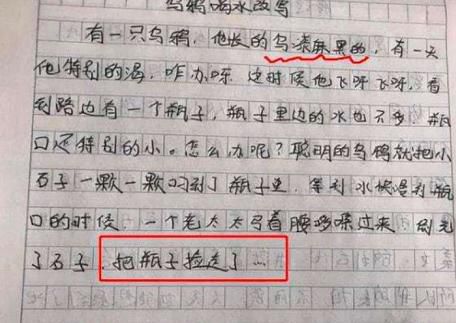 乌鸦喝水改写
有一只乌鸦,他长的乌漆麻黑的,有一天
他特别的渴,咋办呀 这时候他飞呀飞呀,看
到路边有一个瓶子,瓶子里边的水也不多 瓶
口还特别的小。怎么办呢?聪明的乌鸦就把小
石子一颗一颗叼到了瓶子里,等到水快漫到瓶
口的时候,一个老太太弓着腰哆嗦过来,倒光
了石子,把瓶子捡走了…